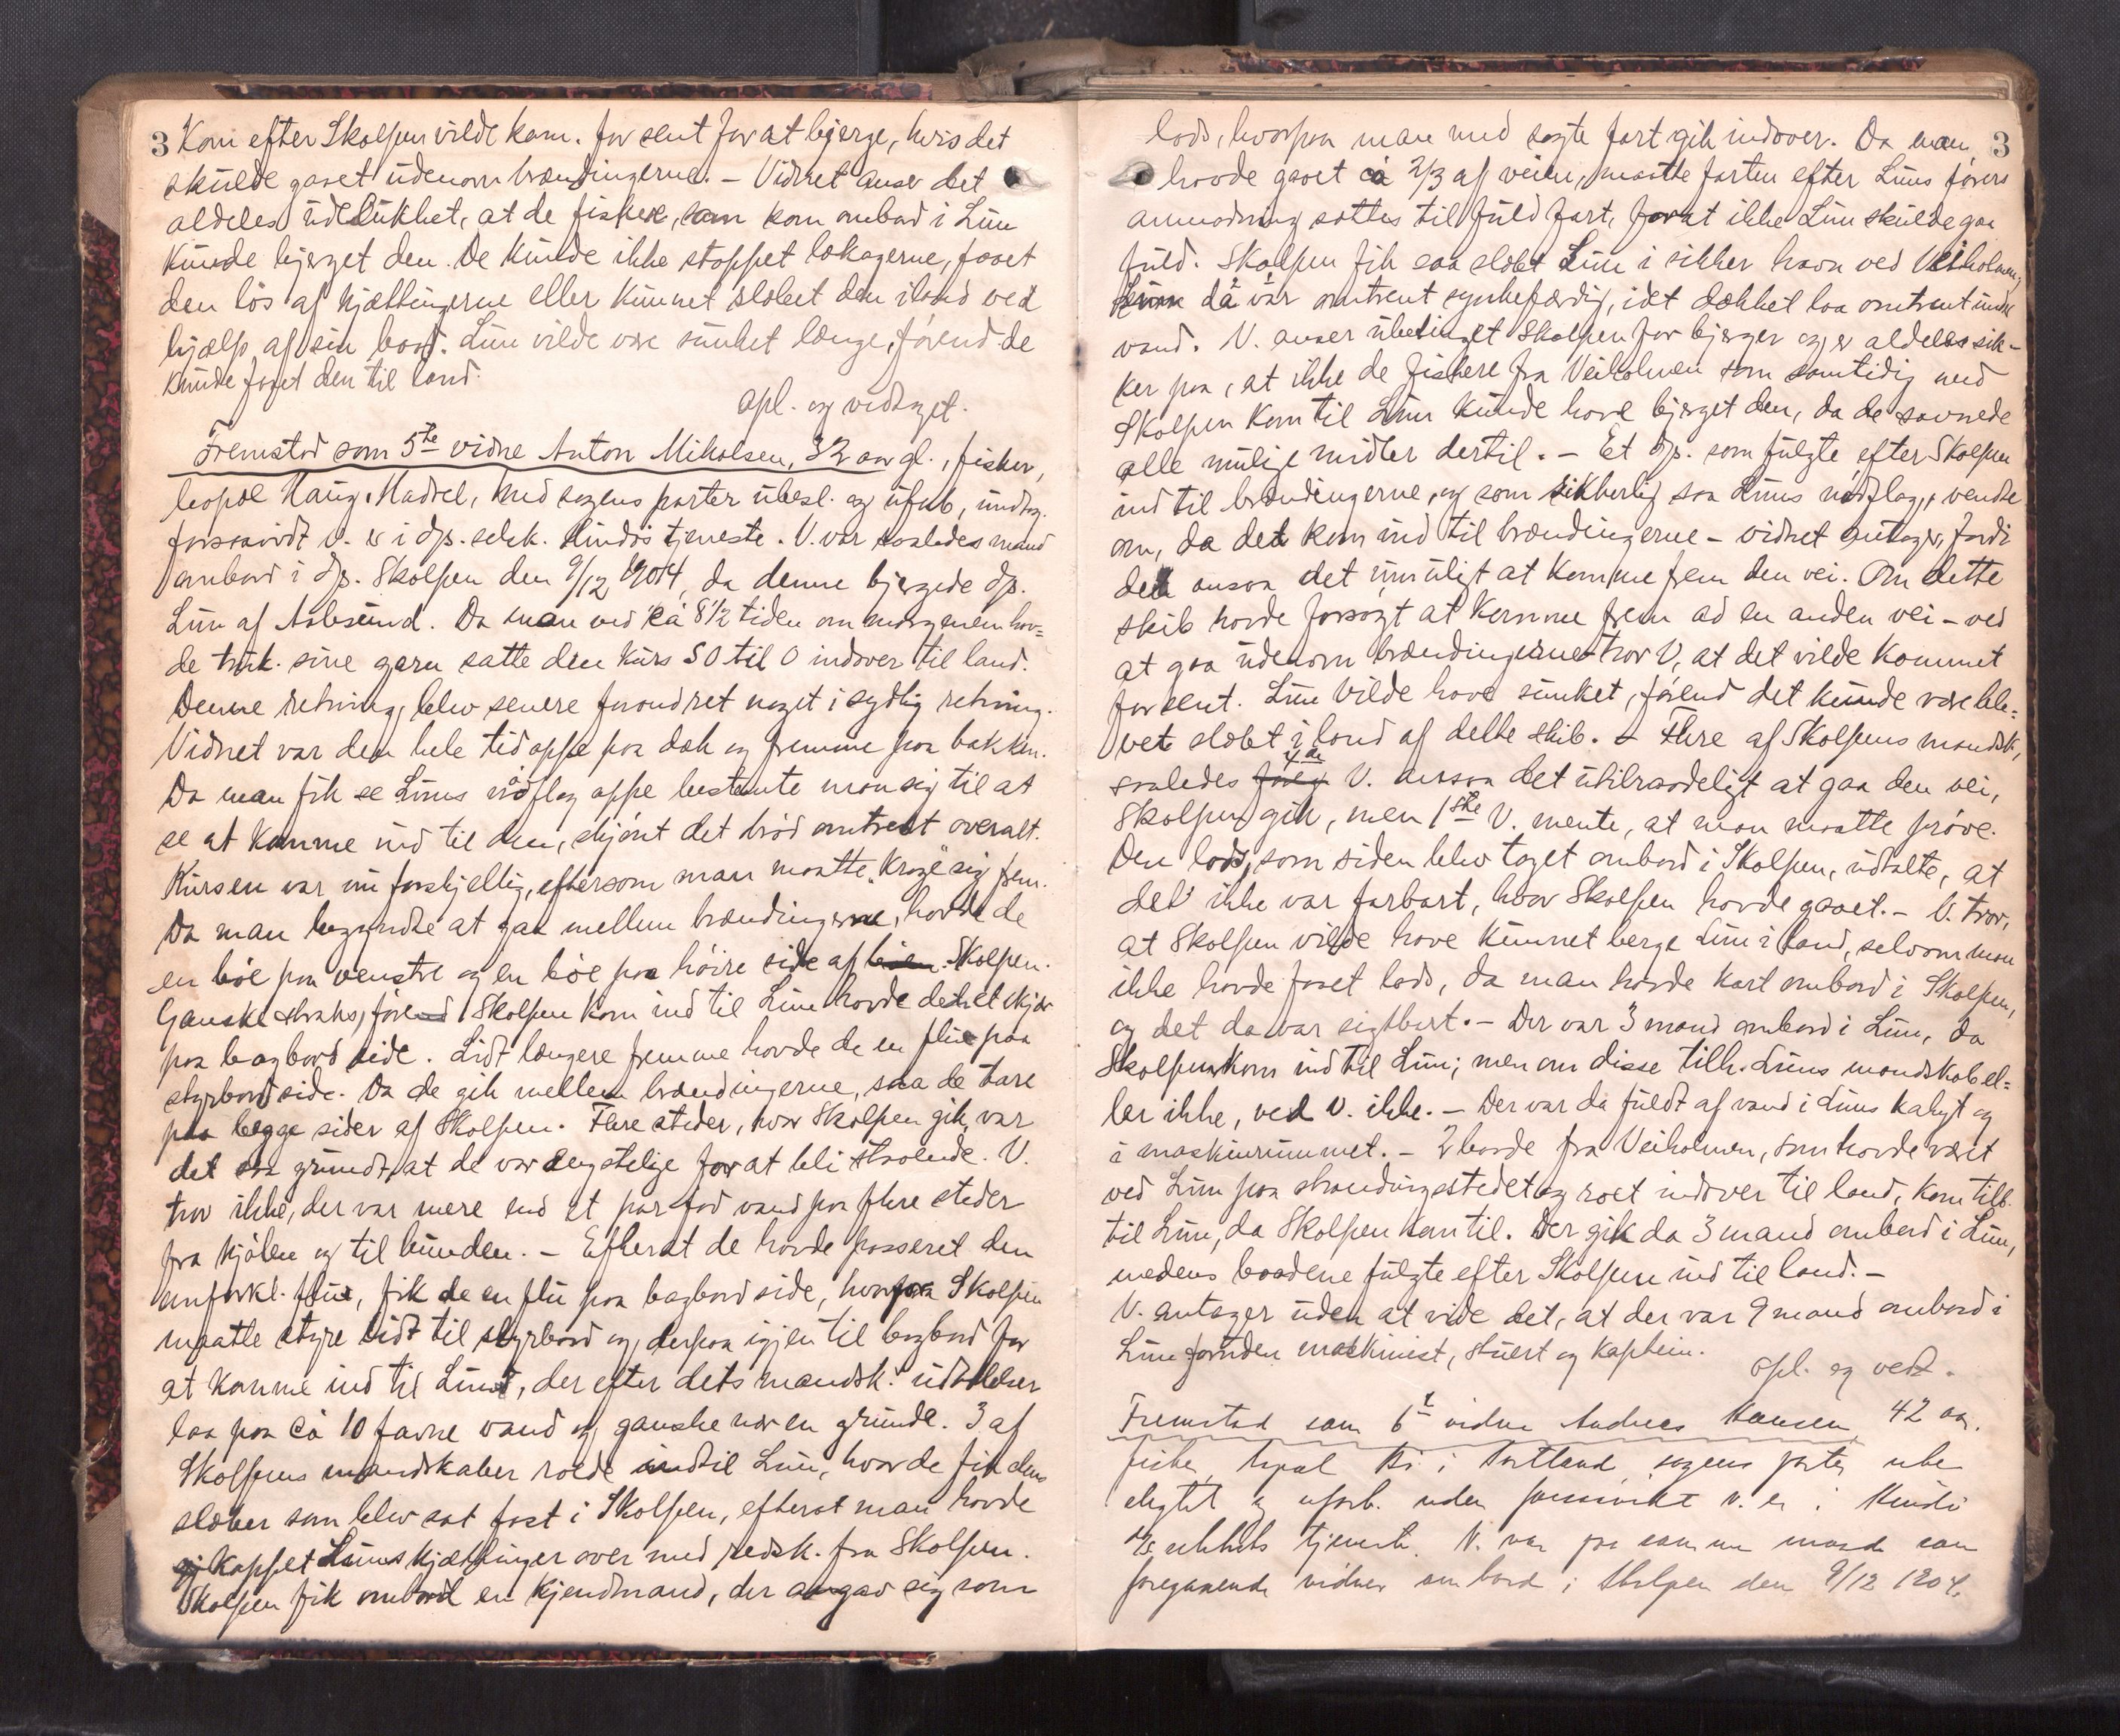 3 Kom efter Skolpen vilde kom. for sent for at bjerge, hvis det
skulde gaaet udenom brændingerne. – Vidnet anser det
aldeles udelukket, at de fiskere, som kom ombord i Lun
kunde bjerget den. De kunde ikke stoppet lækagerne, faaet
den løs af kjættingerne eller kunnet slæbet den iland ved
hjælp af sin baad. Lun vilde være sunket længe, førend de
kunde faaet den til land.
opl. og vedtaget.
Fremstod som 5te vidne Anton Mikalsen, 32 aar gl., fisker,
bopæl Haug. Hadsel, med sagens parter ubesl. og ufub, undtag.
forsaavidt v. er i dp. selsk. Kindøs tjeneste. V. var saaledes mand
ombord i dp. Skolpen den 9/12 1904, da denne bjergede dp.
Lun af Aalesund. Da man ved ca 8½ tiden om morgenen hav=
de truk. sine garn satte den kurs SO til O indover til land.
Denne retning blev senere forandret noget i sydlig retning.
Vidnet var den hele tid oppe paa dæk og fremme paa bakken.
Da man fik se Luns nødflag oppe bestemte man sig til at
se at komme ind til den, skjønt det brød omtrent overalt.
Kursen var nu forskjellig, eftersom man maatte "krøge" sig frem.
Da man begyndte at gaa mellem brændingerne, havde de
en bøe paa venstre og en bøe paa høire side af Skolpen.
Ganske straks, førend Skolpen kom ind til Lun havde det et skjær
paa bagbord side. Lidt længere fremme havde de en flu paa
styrbord side. Da de gik mellem brændingerne, saa de tare
paa begge sider af Skolpen. Flere steder, hvor Skolpen gik, var
det saa grundt, at de var ængstelige for at bli staaende. V.
tror ikke, der var mere end et par fod vand paa flere steder
fra kjølen og til bunden. – Efterat de havde passeret den
anførkl. flu, fik de en flu paa bagbord side, hvorfor Skolpen
maatte styre lidt til styrbord og derpaa igjen til bagbord for
at komme ind til Lun, der efter dets mandsk. udtalelser
laa paa ca 10 favne vand og ganske nær en grunde. 3 af
Skolpens mandskaber roede indtil Lun, hvor de fik dens
slæber som blev sat fast i Skolpen, efterat man havde
kappet Luns kjættinger over med redsk. fra Skolpen.
Skolpen fik ombord en kjendmand, der angav sig som
3
lods, hvorpaa man med sagte fart gik indover. Da man
havde gaaet ca 2/3 af veien, maatte farten efter Luns førers
anmodning sættes til fuld fart, forat ikke Lun skulde gaa
fuld. Skolpen fik saa slæbt Lun i sikker havn ved Veiholmen,
da var omtrent synkefærdig, idet dækket laa omtrent under
vand. V. anser ubetinget Skolpen for bjerger og er aldeles sik-
ker paa, at ikke de fiskere fra Veiholmen som samtidig med
Skolpen kom til Lun kunde have bjerget den, da de savnede
alle mulige midler dertil. – Et dp. som fulgte efter Skolpen
ind til brændingerne, og som sikkerlig saa Luns nødflag, vendte
om, da det kom ind til brændingerne – vidnet antager, fordi
det ansaa det umuligt at komme frem den vei. Om dette
skib havde forsøgt at komme frem ad en anden vei – ved
at gaa udenom brændingerne tror V, at det vilde kommet
for sent. Lun vilde have sunket, førend det kunde være ble=
vet slæbt i land af dette skib. – Flere af Skolpens mandsk.,
saaledes 4de V. ansaa det utilraadeligt at gaa den vei,
Skolpen gik, men 1ste V. mente, at man maatte prøve.
Den lods, som siden blev taget ombord i Skolpen, udtalte, at
det ikke var farbart, hvor Skolpen havde gaaet. – V. tror,
at Skolpen vilde have kunnet berge Lun i land, selvom man
ikke havde faaet lods, da man havde kart ombord i Skolpen,
og det da var sigtbart. – Der var 3 mand ombord i Lun, da
Skolpen kom ind til Lun; men om disse tilh. Luns mandskab el=
ler ikke, ved v. ikke. – Der var da fuldt af vand i Luns kahyt og
i maskinrummet. – 2 baade fra Veiholmen, som havde været
ved Lun paa strandingsstedet og roet indover til land, kom tilb.
til Lun, da Skolpen kom til. Der gik da 3 mand ombord i Lun,
medens baadene fulgte efter Skolpen ind til land. –
V. antager uden at vide det, at der var 9 mand ombord i
Lun foruden maskinist, stuert og kaptein.
opl. og vedt.
Fremstod som 6te vidne Andreas Hansen, 42 aar.
fisker, bopæl i Hortland, sagens parter ube
slegtet og uforb. uden forsaavidt v. er i Kindø
selskabs tjeneste. V. var paa samme maade som
foregaaende vidner ombord i Skolpen den 9/12 1904.